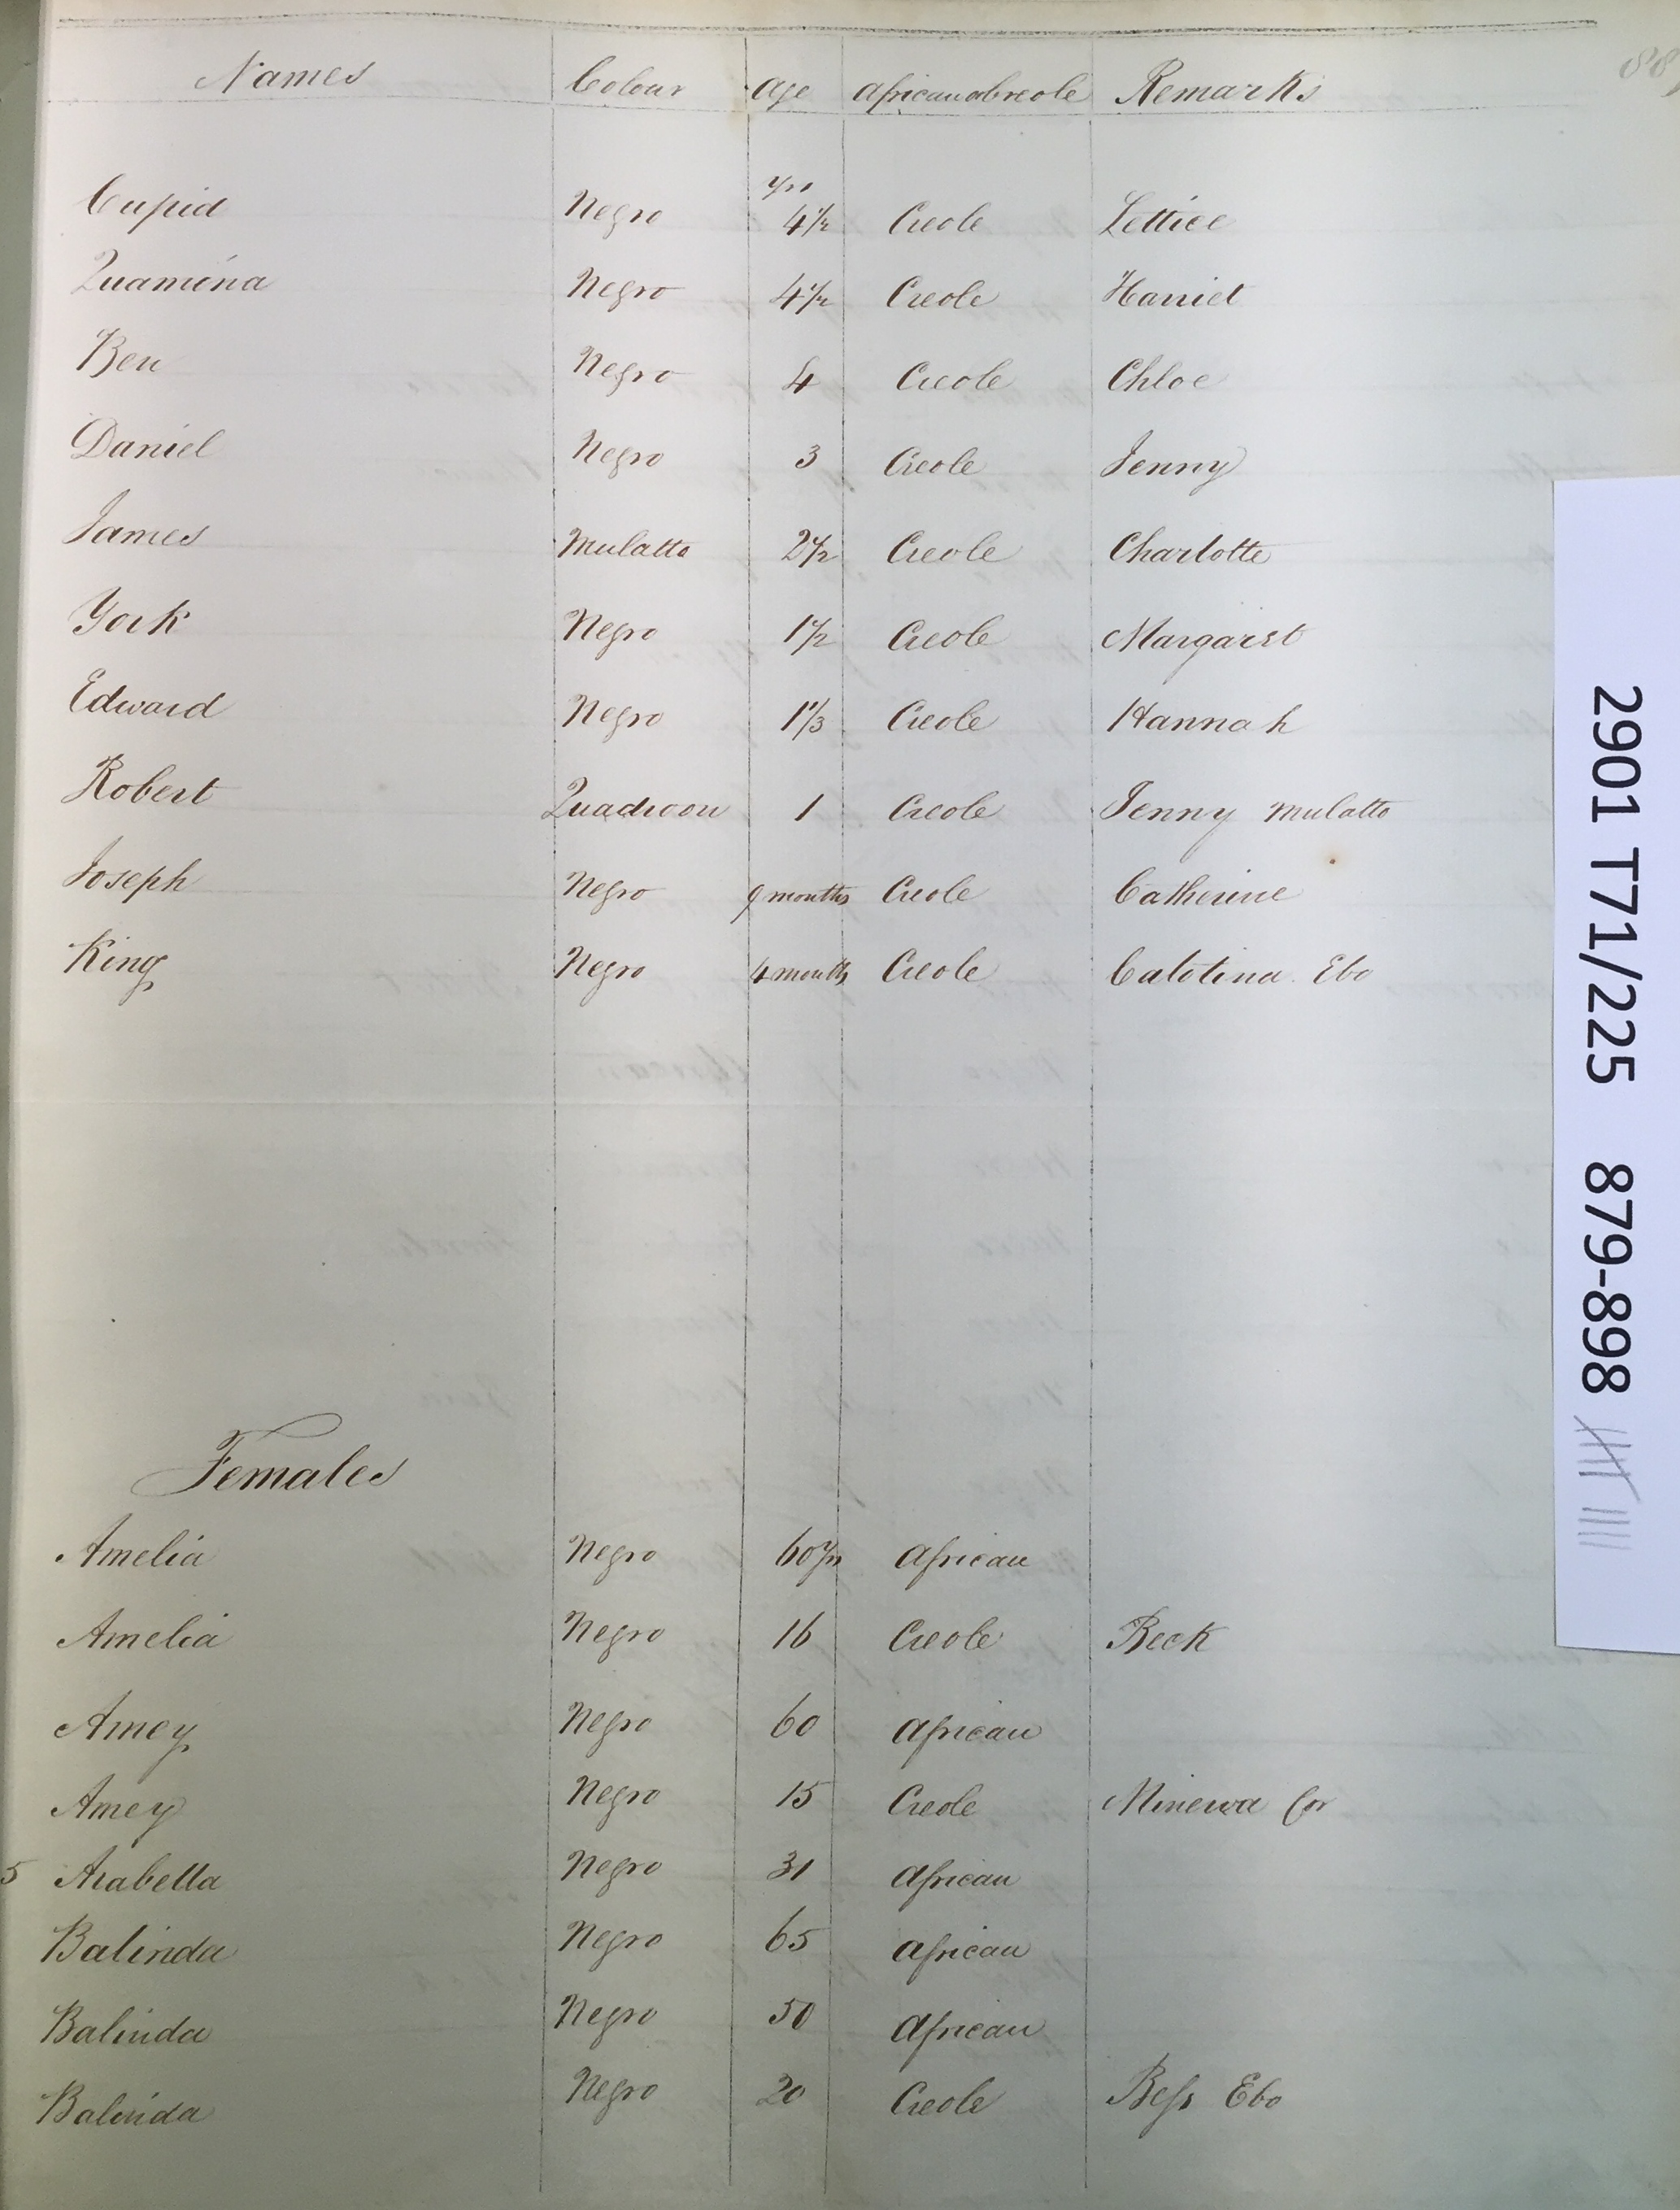 Names Colour Age African or Creole Remarks
yrs
Cupid Negro 4½ Creole Lettice
Quamina Negro 4½ Creole Harriet
Ben Negro 4 Creole Chloe
Daniel Negro 3 Creole Jenny
James Mulatto 2½ Creole Charlotte
York Negro 1½ Creole Margaret
Edward Negro 1⅓ Creole Hannah
Robert Quadroon 1 Creole Jenny Mulatto
Joseph Negro 9 months Creole Catherine
King Negro 4 months Creole Catotina Ebo
Females
Amelia Negro 60 yrs African
Amelia Negro 16 Creole Beck
Amey Negro 60 African
Amey Negro 15 Creole Minerva Cor
5 Arabella Negro 31 African
Balinda Negro 65 African
Balinda Negro 50 African
Balinda Negro 20 Creole Bess Ebo
2901 T71/225 879-898